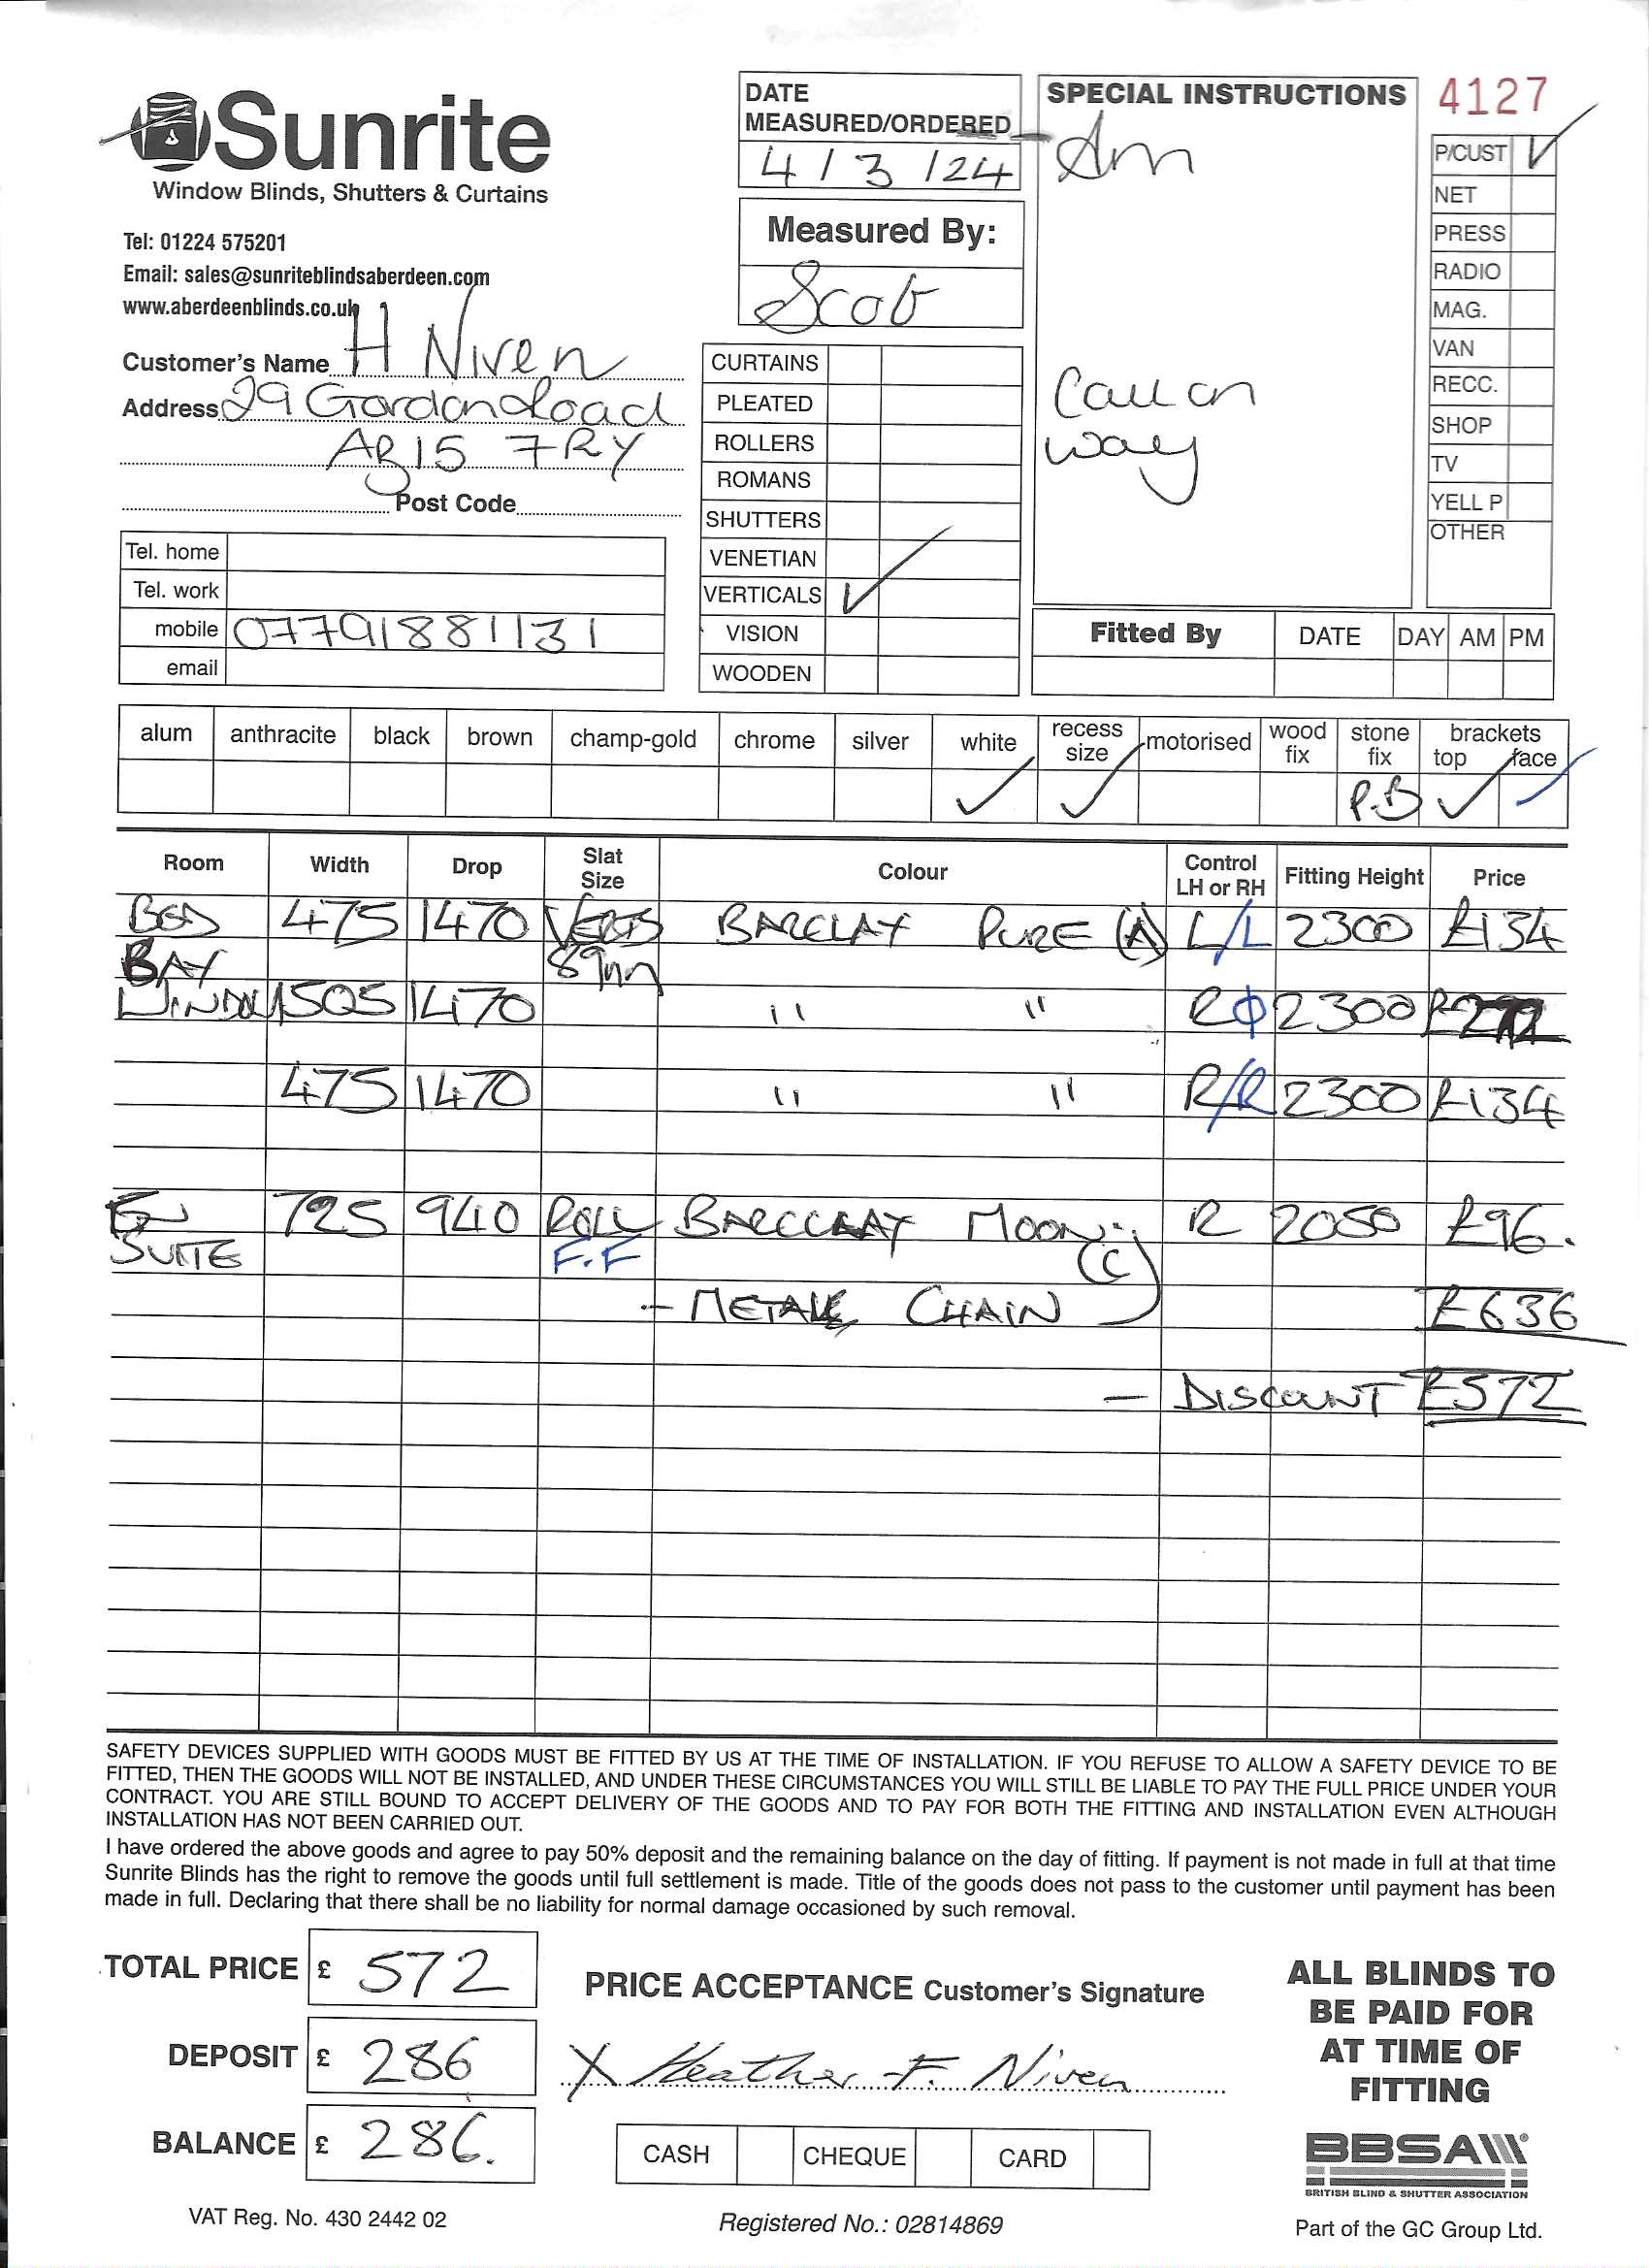 Sunrite
Window Blinds, Shutters & Curtains
Tel: 01224 575201
Email: sales@sunriteblindsaberdeen.com
www.aberdeenblinds.co.uk
Customer's Name H Niven
Address 29 Gordon Road
AB15 7RY
Post Code
Tel. home
Tel. work
mobile 07791881131
email
DATE
MEASURED/ORDERED
4 / 3 / 24
Measured By:
CURTAINS
PLEATED
ROLLERS
ROMANS
SHUTTERS
VENETIAN
VERTICALS ✓
VISION
WOODEN
SPECIAL INSTRUCTIONS
Am
Call on
way
4127
P/CUST ✓
NET
PRESS
RADIO
MAG.
VAN
RECC.
SHOP
TV
YELL P
OTHER
Fitted By DATE DAY AM PM
alum anthracite black brown champ-gold chrome silver white recess size motorised wood fix stone fix brackets top face
✓ ✓ P.B ✓ ✓
Room Width Drop Slat Size Colour Control LH or RH Fitting Height Price
BED 475 1470 VERTS BARCLAY PURE (A) L/L 2300 £134
BAY 89mm
WINDOW 1505 1470 " " R 2300
475 1470 " " R/R 2300 £134
EN 725 940 ROLL BARCCLAY MOON R 2050 £96.
SUITE F.F (C)
- METAL CHAIN £636
- DISCOUNT £572
SAFETY DEVICES SUPPLIED WITH GOODS MUST BE FITTED BY US AT THE TIME OF INSTALLATION. IF YOU REFUSE TO ALLOW A SAFETY DEVICE TO BE
FITTED, THEN THE GOODS WILL NOT BE INSTALLED, AND UNDER THESE CIRCUMSTANCES YOU WILL STILL BE LIABLE TO PAY THE FULL PRICE UNDER YOUR
CONTRACT. YOU ARE STILL BOUND TO ACCEPT DELIVERY OF THE GOODS AND TO PAY FOR BOTH THE FITTING AND INSTALLATION EVEN ALTHOUGH
INSTALLATION HAS NOT BEEN CARRIED OUT.
I have ordered the above goods and agree to pay 50% deposit and the remaining balance on the day of fitting. If payment is not made in full at that time
Sunrite Blinds has the right to remove the goods until full settlement is made. Title of the goods does not pass to the customer until payment has been
made in full. Declaring that there shall be no liability for normal damage occasioned by such removal.
TOTAL PRICE £ 572
DEPOSIT £ 286
BALANCE £ 286.
PRICE ACCEPTANCE Customer's Signature
X Heather F. Niven
CASH CHEQUE CARD
ALL BLINDS TO
BE PAID FOR
AT TIME OF
FITTING
BBSA
BRITISH BLIND & SHUTTER ASSOCIATION
VAT Reg. No. 430 2442 02
Registered No.: 02814869
Part of the GC Group Ltd.